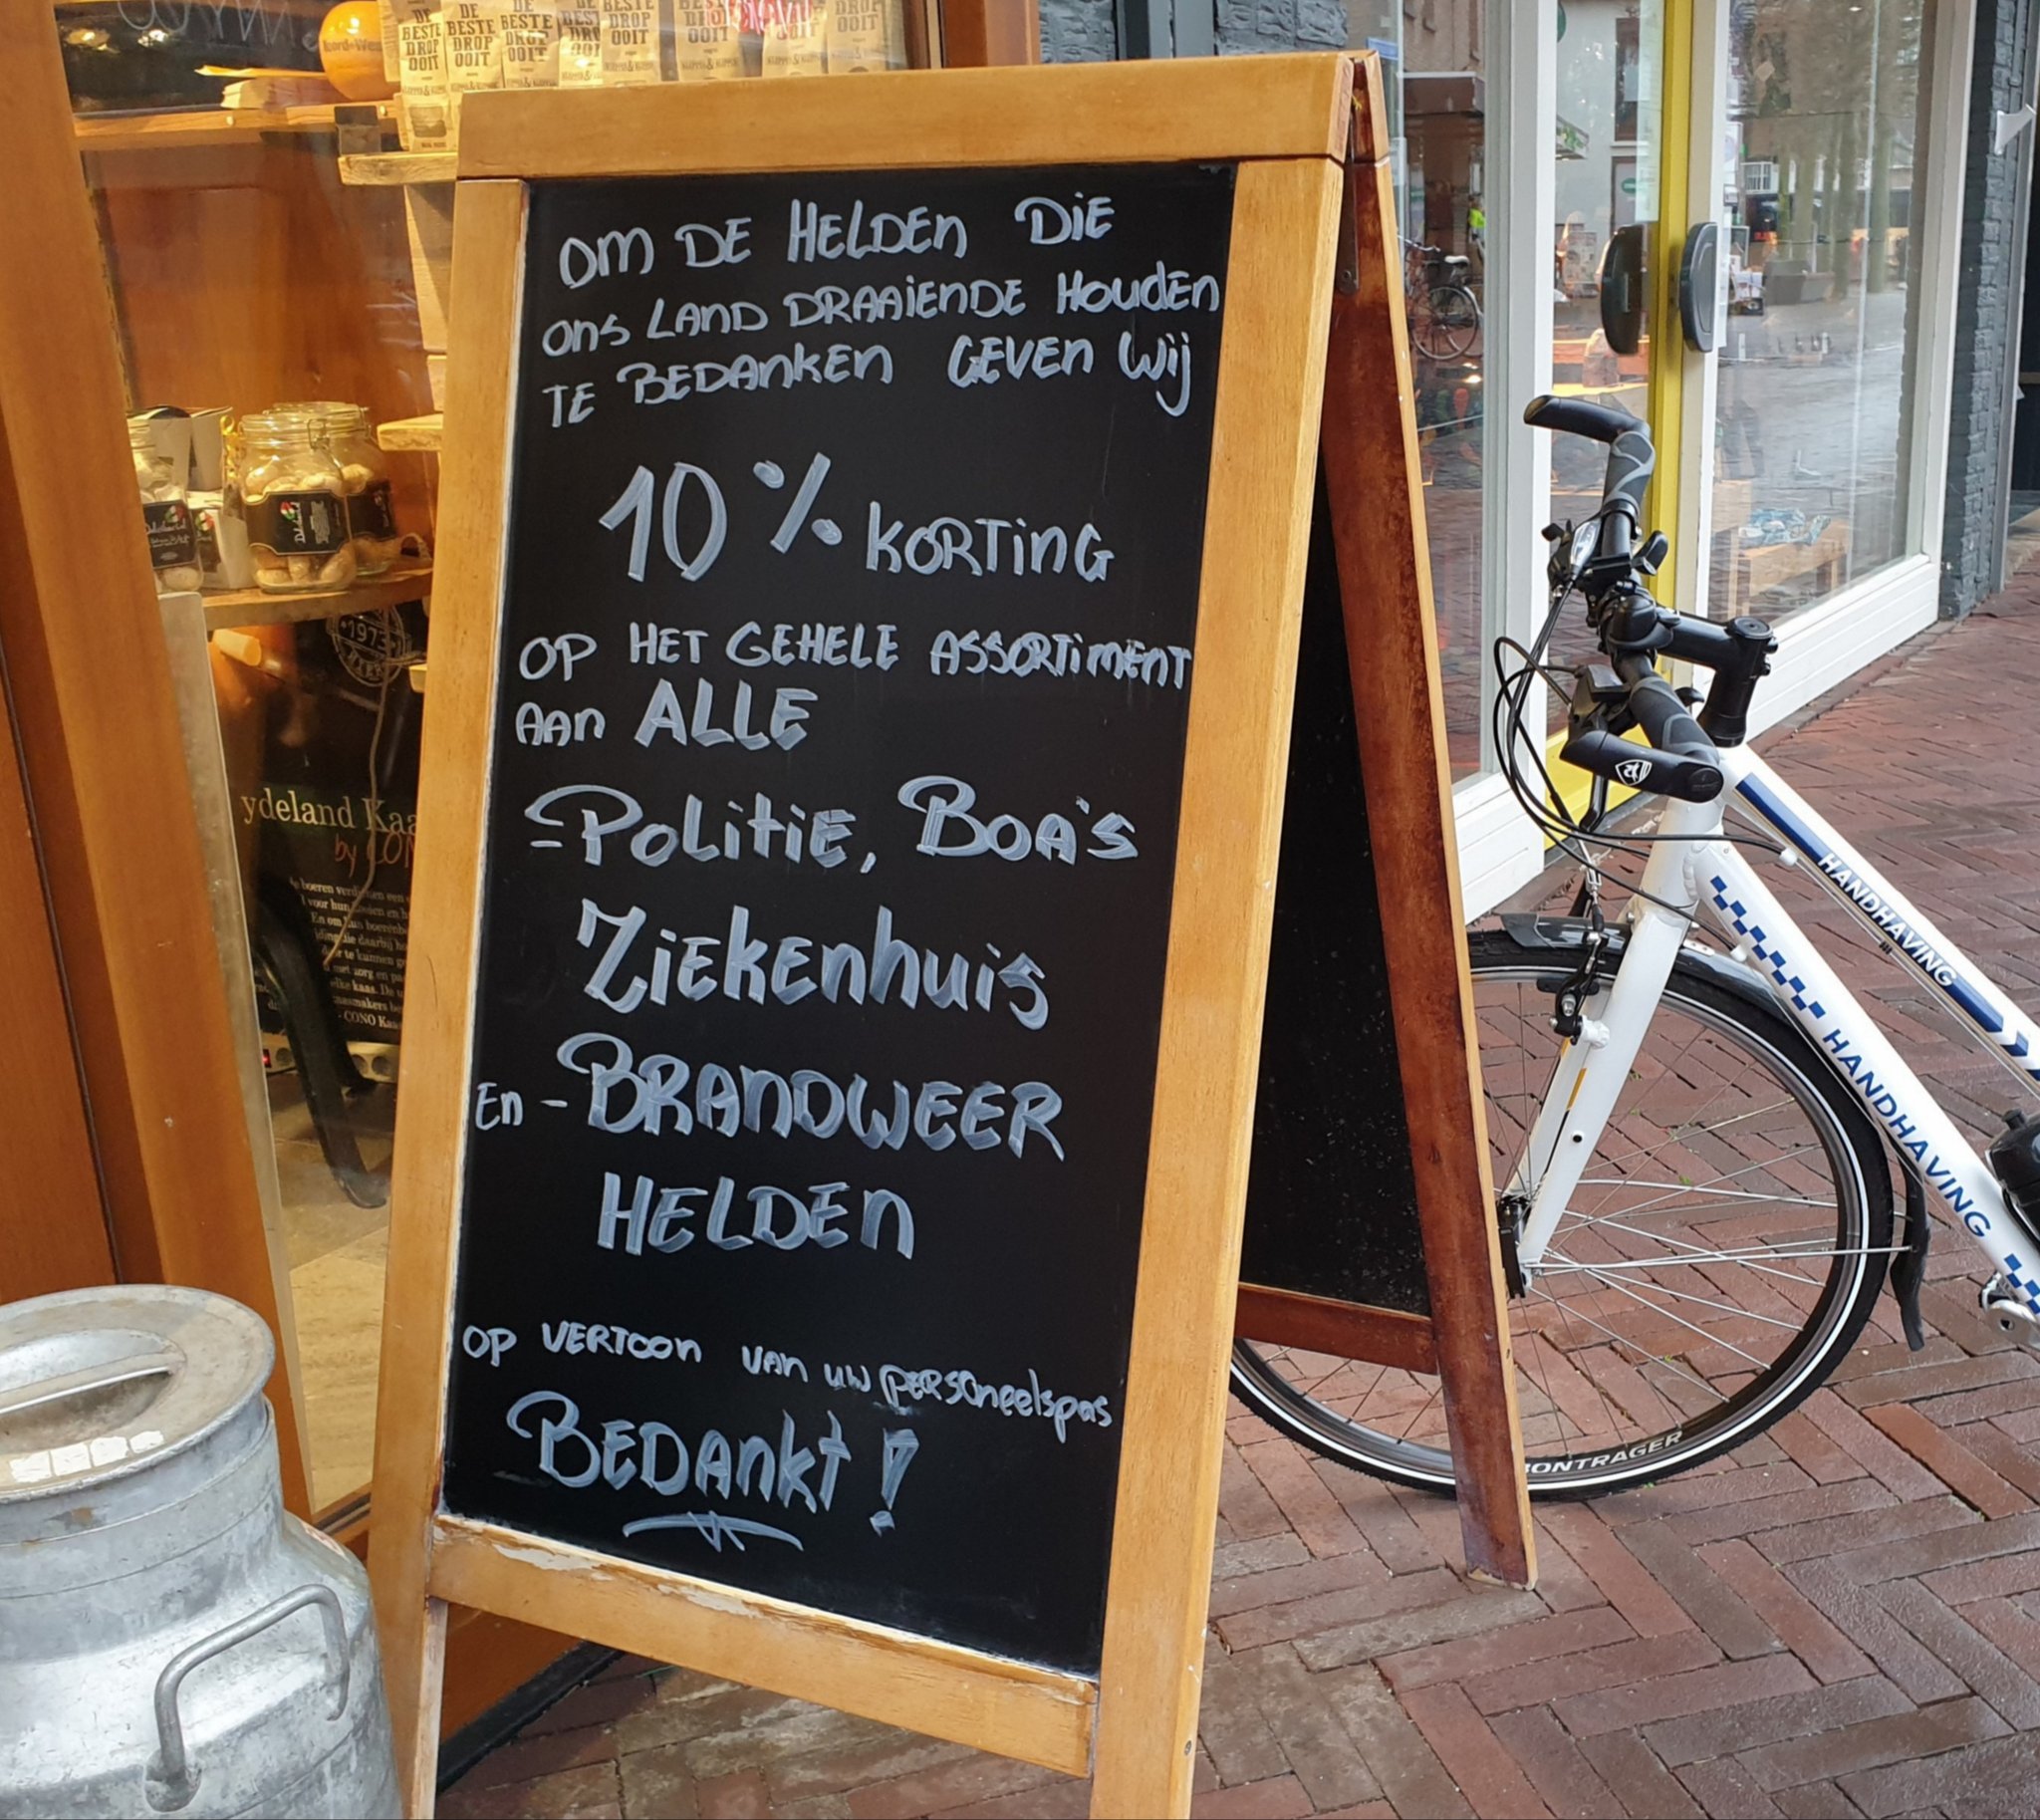 DE BESTE DROP OOIT
DE BESTE DROP OOIT
DE BESTE DROP OOIT
BESTE DROP OOIT
DROP OOIT
Noord-
OM DE HELDEN DIE
ONS LAND DRAAIENDE HOUDEN
TE BEDANKEN GEVEN WIJ
10% KORTING
OP HET GEHELE ASSORTIMENT
AAN ALLE
- POLITIE, BOA'S
ZIEKENHUIS
EN - BRANDWEER
HELDEN
OP VERTOON VAN UW PERSONEELSPAS
BEDANKT!
1973
ydeland Kaa
by CON
CONO Kaa
HANDHAVING
HANDHAVING
BONTRAGER